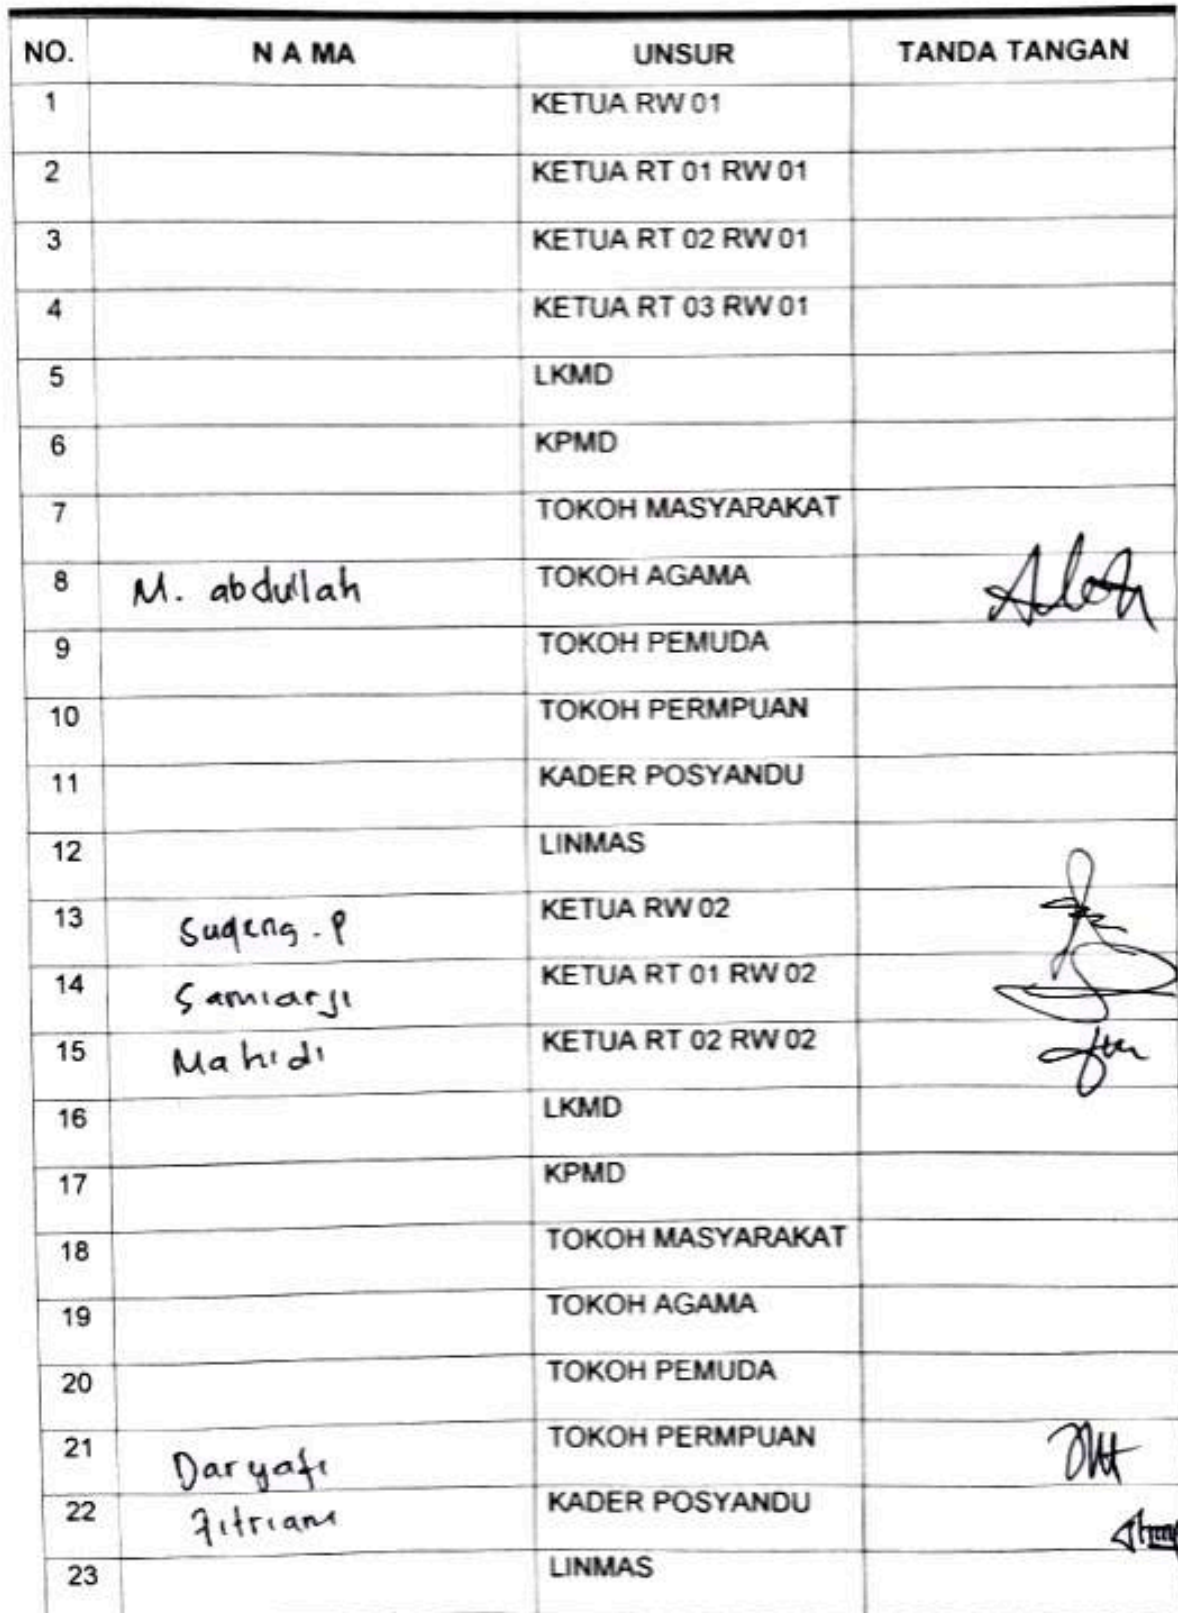 NO. N A M A UNSUR TANDA TANGAN
1 KETUA RW 01
2 KETUA RT 01 RW 01
3 KETUA RT 02 RW 01
4 KETUA RT 03 RW 01
5 LKMD
6 KPMD
7 TOKOH MASYARAKAT
8 M. abdullah TOKOH AGAMA
9 TOKOH PEMUDA
10 TOKOH PERMPUAN
11 KADER POSYANDU
12 LINMAS
13 Sugeng . P KETUA RW 02
14 Samiarji KETUA RT 01 RW 02
15 Mahidi KETUA RT 02 RW 02
16 LKMD
17 KPMD
18 TOKOH MASYARAKAT
19 TOKOH AGAMA
20 TOKOH PEMUDA
21 Daryati TOKOH PERMPUAN
22 Fitriani KADER POSYANDU
23 LINMAS